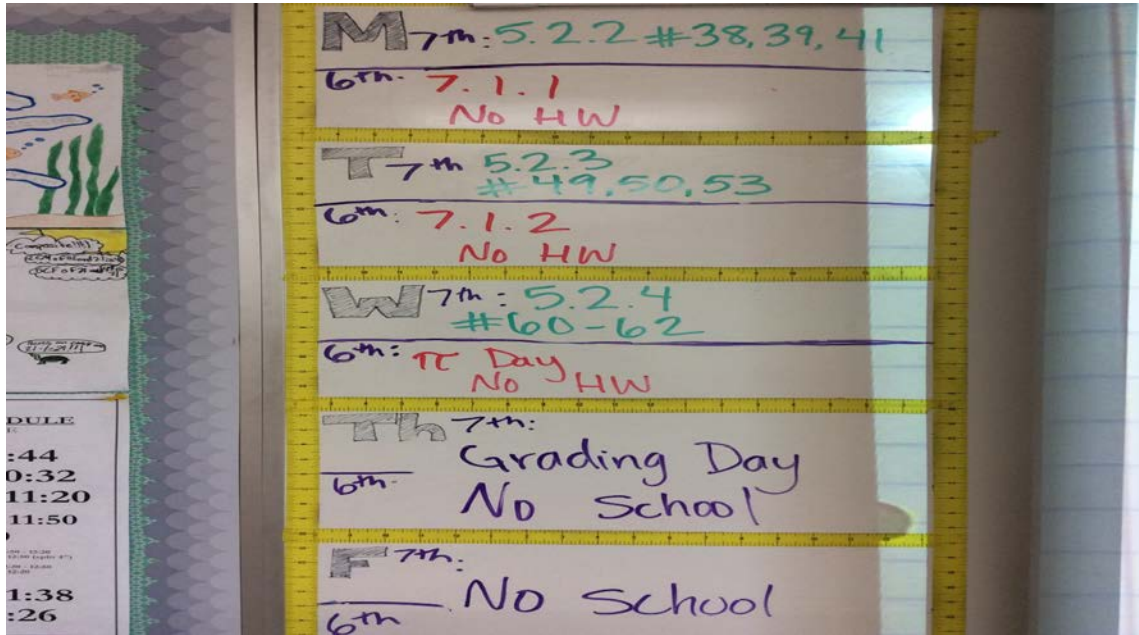 M 7th: 5.2.2 #38, 39, 41
6th: 7.1.1
No HW
T 7th 5.2.3
#49, 50, 53
6th: 7.1.2
No HW
W 7th: 5.2.4
#60-62
6th: π Day
No HW
Th 7th:
Grading Day
6th-
No School
F 7th:
No School
6th
Composite!!!!
DULE
:44
0:32
11:20
11:50
1:38
:26